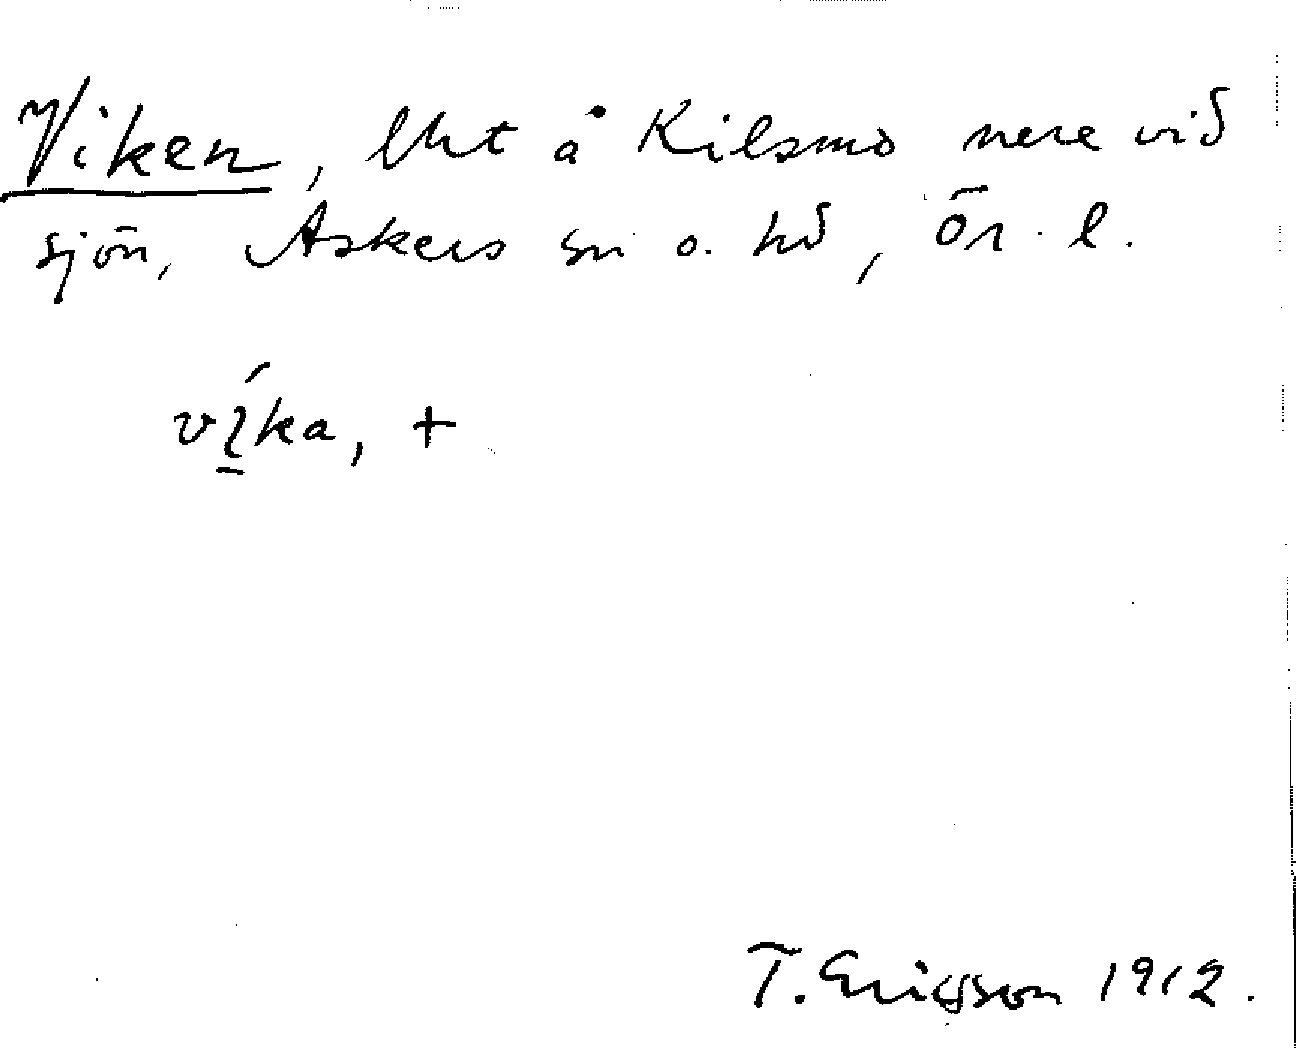 Viken, lht å Kilsmo nere vid
sjön, Askers sn o. hd, Ör. l.
víka, +
T. Ericsson 1912.